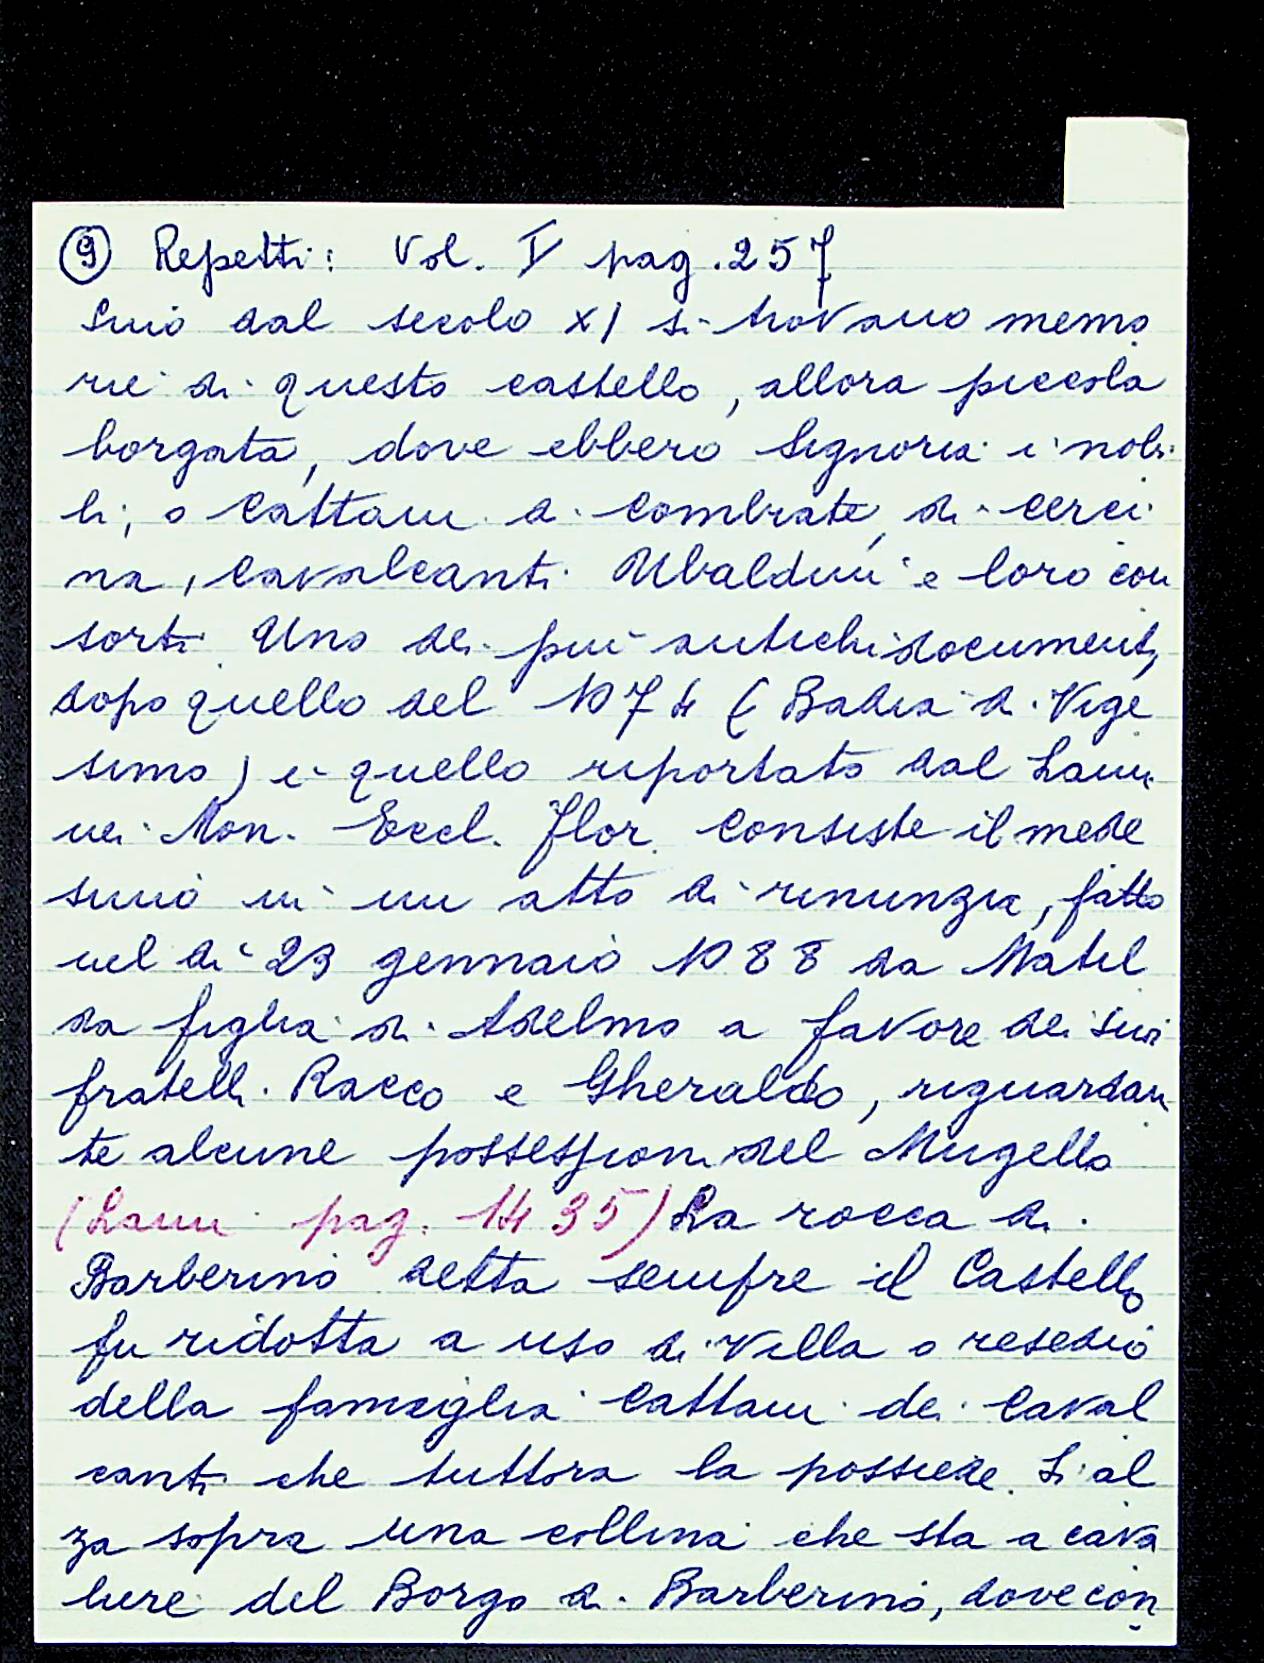 ⑨ Repetti: Vol. V pag. 257
Sino dal secolo XI si trovano memo
rie di questo castello, allora piccola
borgata, dove ebbero Signoria i nobi
li, o Cattani di Combiate, di Cerci
na, Cavalcanti Ubaldini e loro con
sorti. Uno dei più antichi documenti,
dopo quello del 1074 (Badia di Vige
simo) è quello riportato dal Lami
nei Mon. Eccl. Flor. Consiste il mede
simo in un atto di rinunzia, fatto
nel dì 23 gennaio 1088 da Matil
da figlia di Adelmo a favore dei suoi
fratelli Racco e Gheraldo, riguardan
te alcune possessioni del Mugello
(Lami pag. 1435) La rocca di
Barberino detta sempre il Castello
fu ridotta a uso di Villa o resedio
della famiglia Cattani dei Caval
canti che tuttora la possiede. Si al
za sopra una collina che sta a cava
liere del Borgo di Barberino, dove con